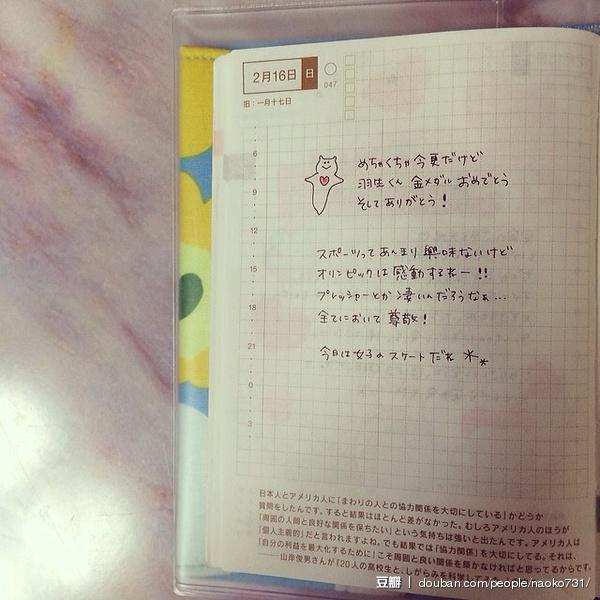 2月16日 日
047
旧:一月十七日
めちゃくちゃ今更だけど
羽生くん 金メダル おめでとう
そしてありがとう!
スポーツってあんまり興味ないけど
オリンピックは感動するねー!!
プレッシャーとか凄いんだろうなぁ…
全てにおいて尊敬!
今日は女子のスケートだね **
6
9
12
15
18
21
0
3
日本人とアメリカ人に「まわりの人との協力関係を大切にしている」かどうか
質問をしたんです。すると結果はほとんど差がなかった。むしろアメリカ人のほうが
「周囲の人間と良好な関係を保ちたい」という気持ちは強いと出たんです。アメリカ人は
「個人主義的」だと言われますよね。でも結果では「協力関係」を大切にしてる。それは、
「自分の利益を最大化するために」こそ周囲と良い関係を築かなければと思ってるからです。
──山岸俊男さんが『20人の高校生と、しがらみを科学して
豆瓣 | douban.com/people/naoko731/